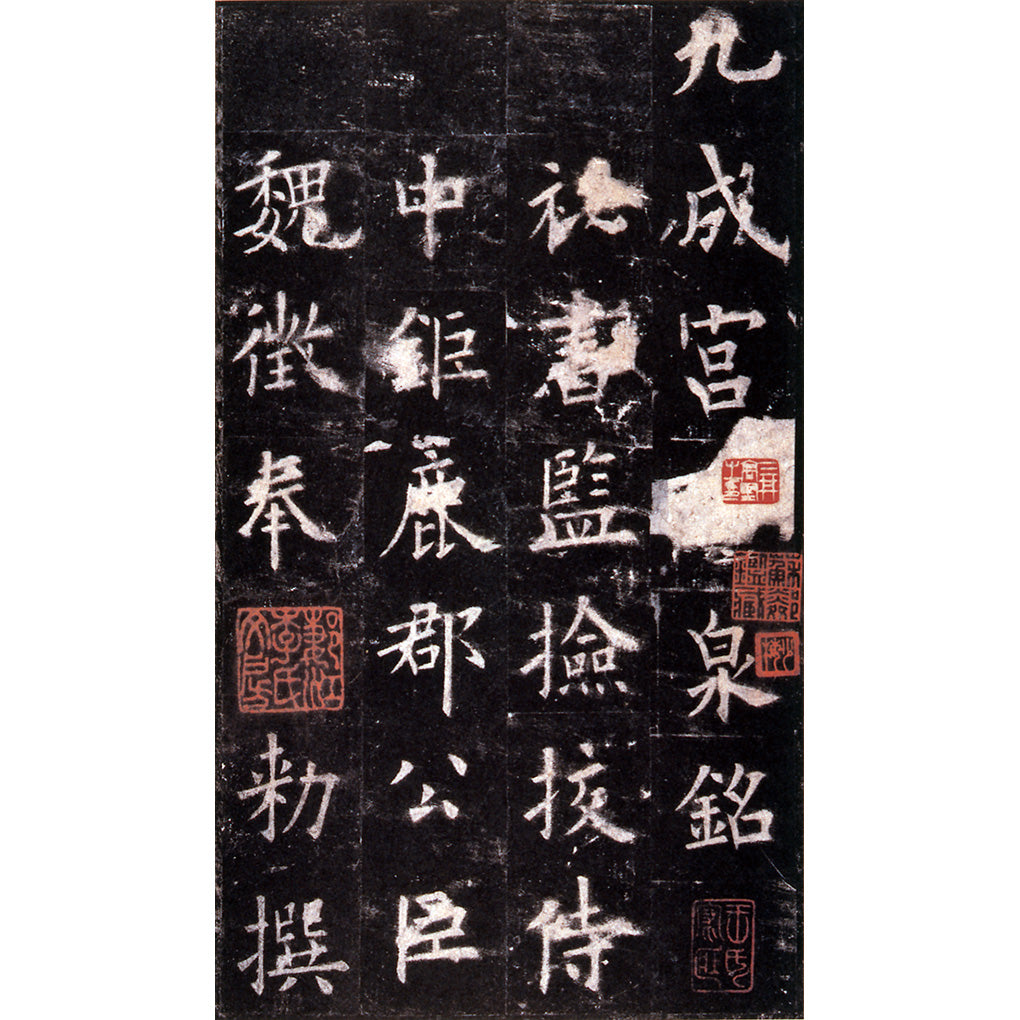 九成宮泉銘
祕書監撿挍侍
中鉅鹿郡公臣
魏徵奉
勑撰